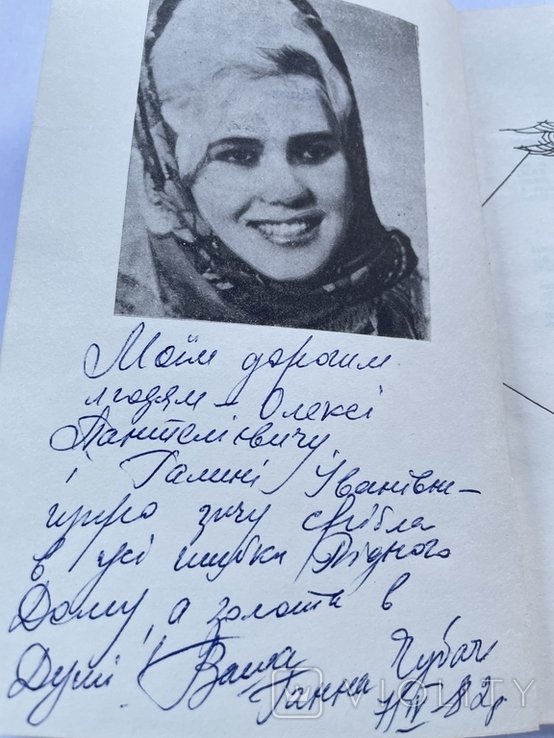 Моїм дорогим
людям – Олексі
Пантелієвичу
і Галині Іванівні –
щиро зичу срібла
в усі шибки Рідного
Дому, а золота в
Душі! Ваша
Ганна Чубач
7/IV-82р
VIOLITY